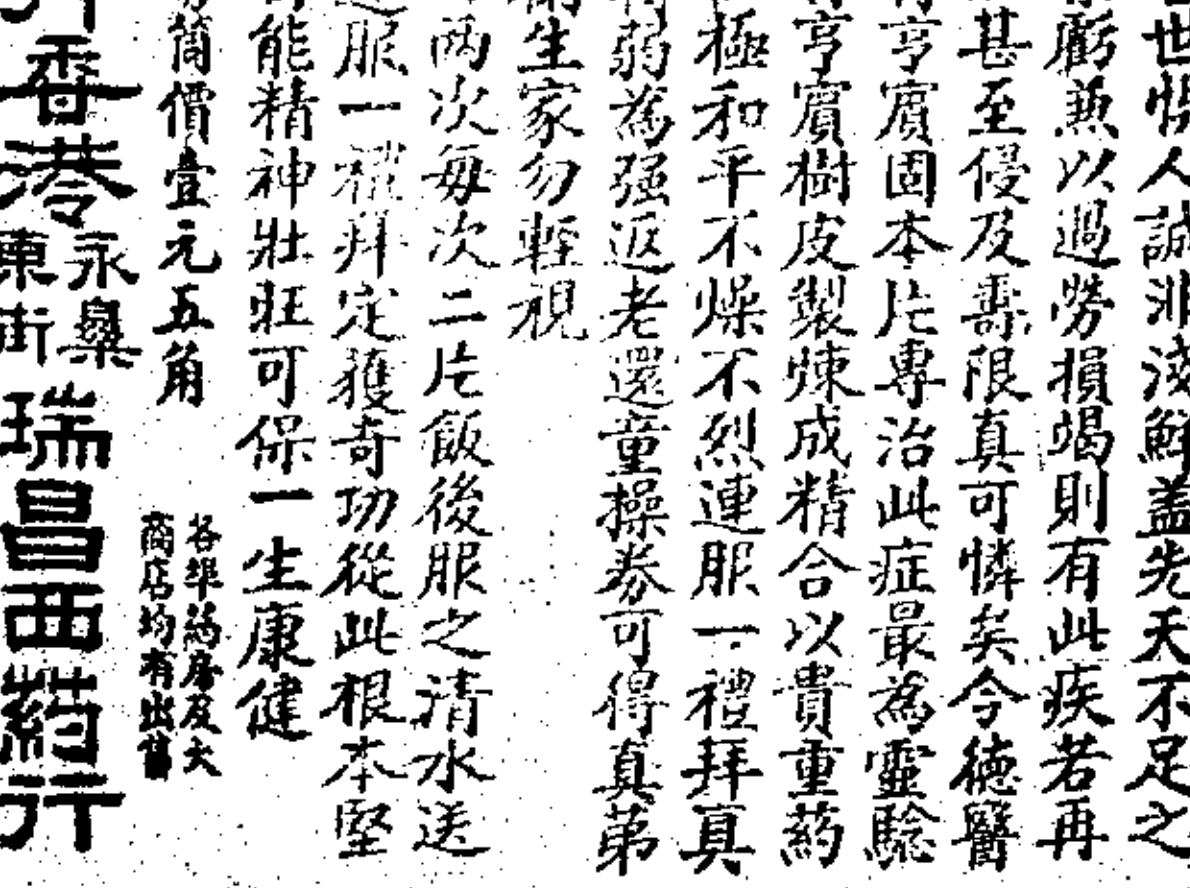 世悞人誠非淺鮮盖先天不足之
虧兼以過勞損竭則有此疾若再
甚至侵及壽限真可憐矣今德醫
亨賓固本片專治此症最為靈驗
亨賓樹皮製煉成精合以貴重葯
極和平不燥不烈連服一禮拜真
弱為强返老還童操券可得真第
生家勿輕視
两次每次二片飯後服之清水送
服一禮拜定獲奇功從此根本堅
能精神壯旺可保一生康健
筒價壹元五角
各埠葯房及大
商店均有出售
香港
永樂
東街
瑞昌西葯行